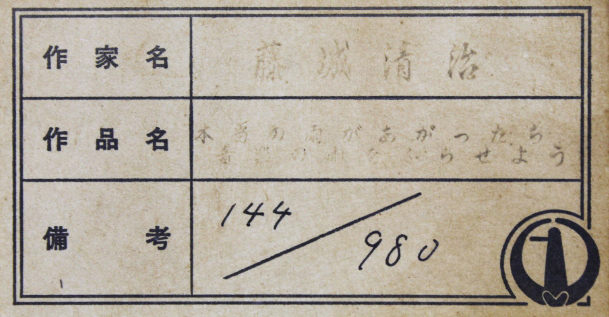 作家名 藤城清治
作品名 本当の雨があがったら
らせよう
備考 144/980